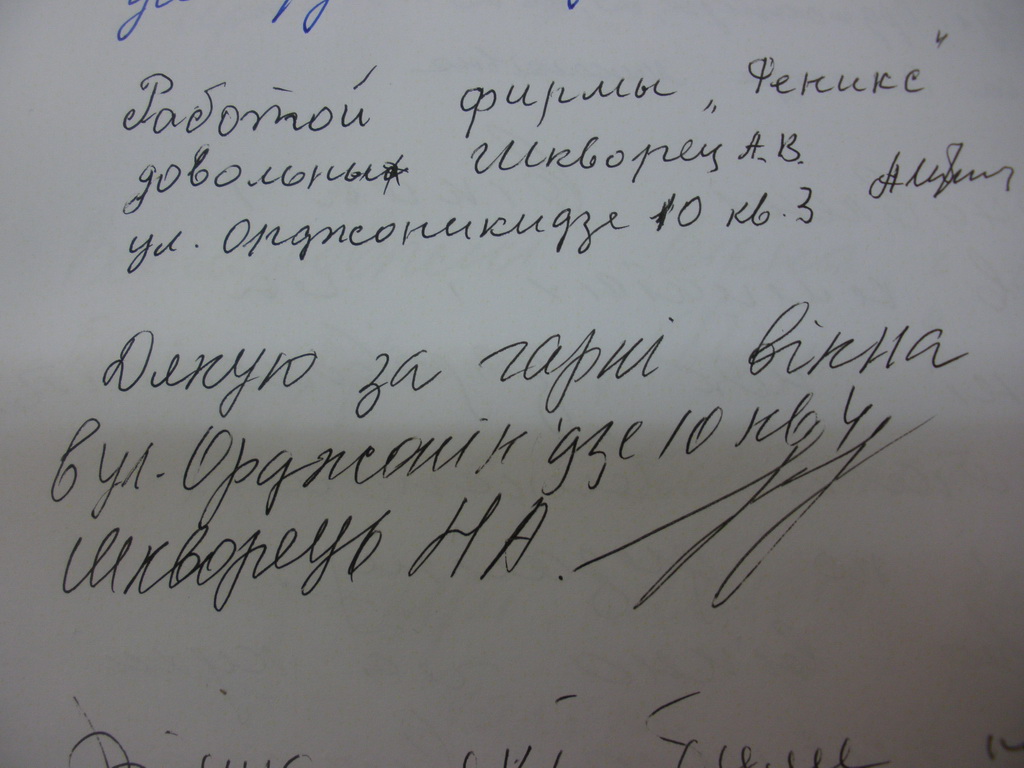 Работой фирмы „Феникс"
довольны Шкворец А.В.
ул. Орджоникидзе 10 кв. 3
Дякую за гарні вікна
вул. Орджонікідзе 10 кв 4
Шкворець Н А.